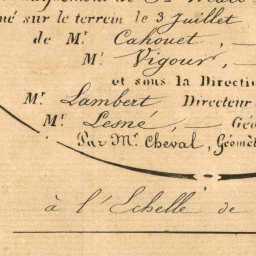 né sur le terrein le 3 Juillet
de Mr. Cahouet,
Mr. Vigour,
et sous la Directi
Mr. Lambert Directeur
Mr. Lesné, Gé
Par Mr. Cheval, Géomèt
à l'Echelle de